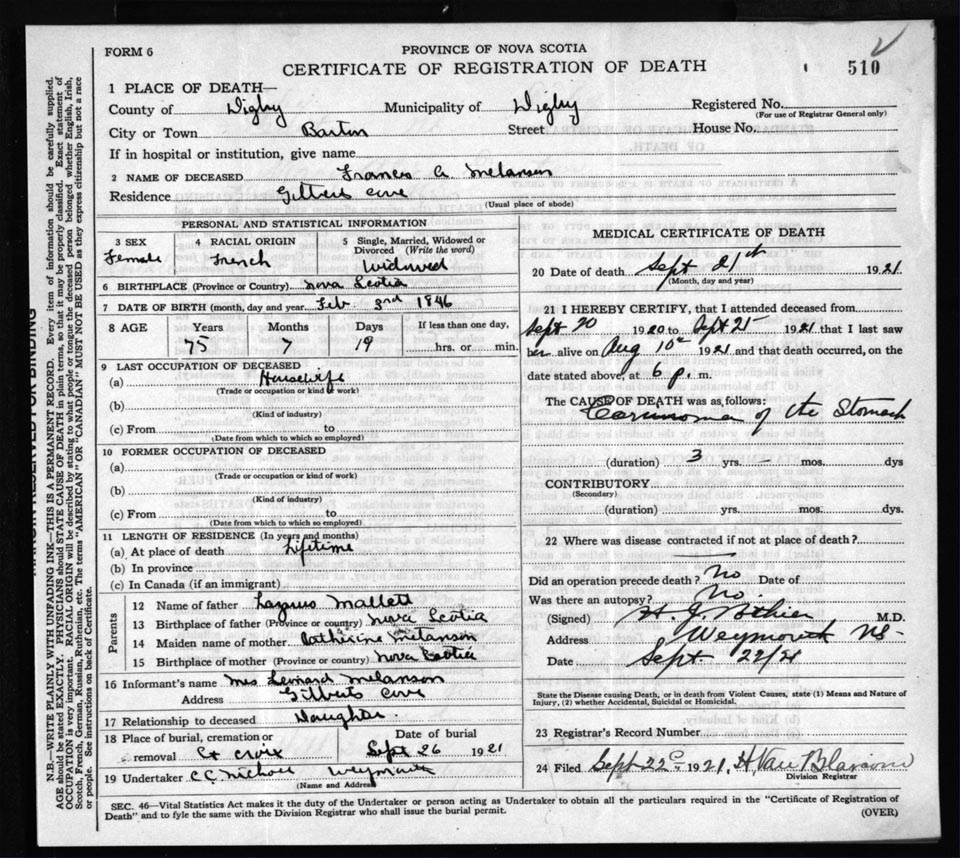 FORM 6
PROVINCE OF NOVA SCOTIA
CERTIFICATE OF REGISTRATION OF DEATH
510
1 PLACE OF DEATH—
County of Digby Municipality of Digby Registered No.
(For use of Registrar General only)
City or Town Barton Street House No.
If in hospital or institution, give name
2 NAME OF DECEASED Frances A. Melanson
Residence Gilberts Cove
(Usual place of abode)
PERSONAL AND STATISTICAL INFORMATION
3 SEX 4 RACIAL ORIGIN 5 Single, Married, Widowed or Divorced (Write the word)
Female French Widowed
6 BIRTHPLACE (Province or Country) Nova Scotia
7 DATE OF BIRTH (month, day and year) Feb 3rd 1846
8 AGE Years Months Days If less than one day,
75 7 19 hrs. or min.
9 LAST OCCUPATION OF DECEASED
(a) Housewife
(Trade or occupation or kind of work)
(b)
(Kind of industry)
(c) From to
(Date from which to which so employed)
10 FORMER OCCUPATION OF DECEASED
(a)
(Trade or occupation or kind of work)
(b)
(Kind of industry)
(c) From to
(Date from which to which so employed)
11 LENGTH OF RESIDENCE (In years and months)
(a) At place of death Lifetime
(b) In province
(c) In Canada (if an immigrant)
Parents
12 Name of father Lazarus Mallett
13 Birthplace of father (Province or country) Nova Scotia
14 Maiden name of mother Catherine Melanson
15 Birthplace of mother (Province or country) Nova Scotia
16 Informant's name Mrs Leonard Melanson
Address Gilberts Cove
17 Relationship to deceased Daughter.
18 Place of burial, cremation or Date of burial
removal St Croix Sept 26 1921
19 Undertaker C.C. Nichols Weymouth
(Name and Address)
MEDICAL CERTIFICATE OF DEATH
20 Date of death Sept 21st 1921
(Month, day and year)
21 I HEREBY CERTIFY, that I attended deceased from
Sept 20 1920 to Sept 21– 1921 that I last saw
her alive on Aug 10th 1921 and that death occurred, on the
date stated above, at 6 p. m.
The CAUSE OF DEATH was as, follows:
Carcinoma of the Stomach
(duration) 3 yrs. – mos. dys
CONTRIBUTORY
(Secondary)
(duration) yrs. mos. dys.
22 Where was disease contracted if not at place of death?
Did an operation precede death? No Date of
Was there an autopsy? No.
(Signed) H. J. M.D.
Address Weymouth NS–
Date Sept. 22/21
State the Disease causing Death, or in death from Violent Causes, state (1) Means and Nature of
Injury, (2) whether Accidental, Suicidal or Homicidal.
23 Registrar's Record Number
24 Filed Sept 22 1921, H. Van Blarcom
Division Registrar
SEC. 46—Vital Statistics Act makes it the duty of the Undertaker or person acting as Undertaker to obtain all the particulars required in the "Certificate of Registration of
Death" and to fyle the same with the Division Registrar who shall issue the burial permit.
(OVER)
MARGIN RESERVED FOR BINDING
N.B.—WRITE PLAINLY WITH UNFADING INK—THIS IS A PERMANENT RECORD. Every item of information should be carefully supplied.
AGE should be stated EXACTLY. PHYSICIANS should STATE CAUSE OF DEATH in plain terms, so that it may be properly classified. Exact statement of
OCCUPATION is very important. RACIAL ORIGIN will be described by stating to what people or tongue the deceased person belonged whether English, Irish,
Scotch, French, German, Russian, Ruthenian, etc. The terms "AMERICAN" OR "CANADIAN" MUST NOT BE USED as they express citizenship but not a race
or people. See instructions on back of Certificate.